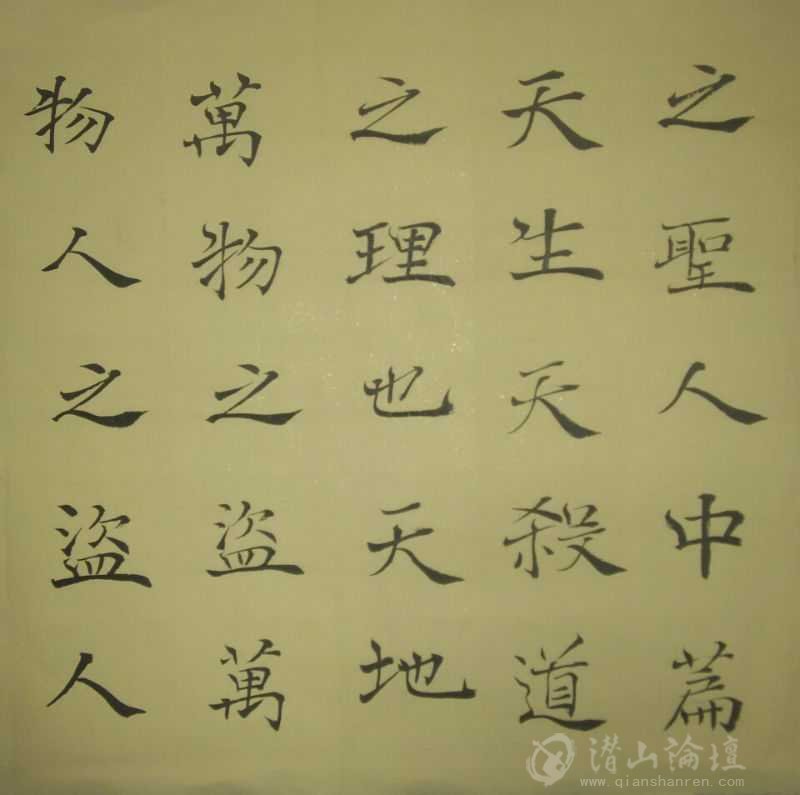 之聖人中篇
天生天殺道
之理也天地
萬物之盜萬
物人之盜人
潜山論壇
www.qianshanren.com